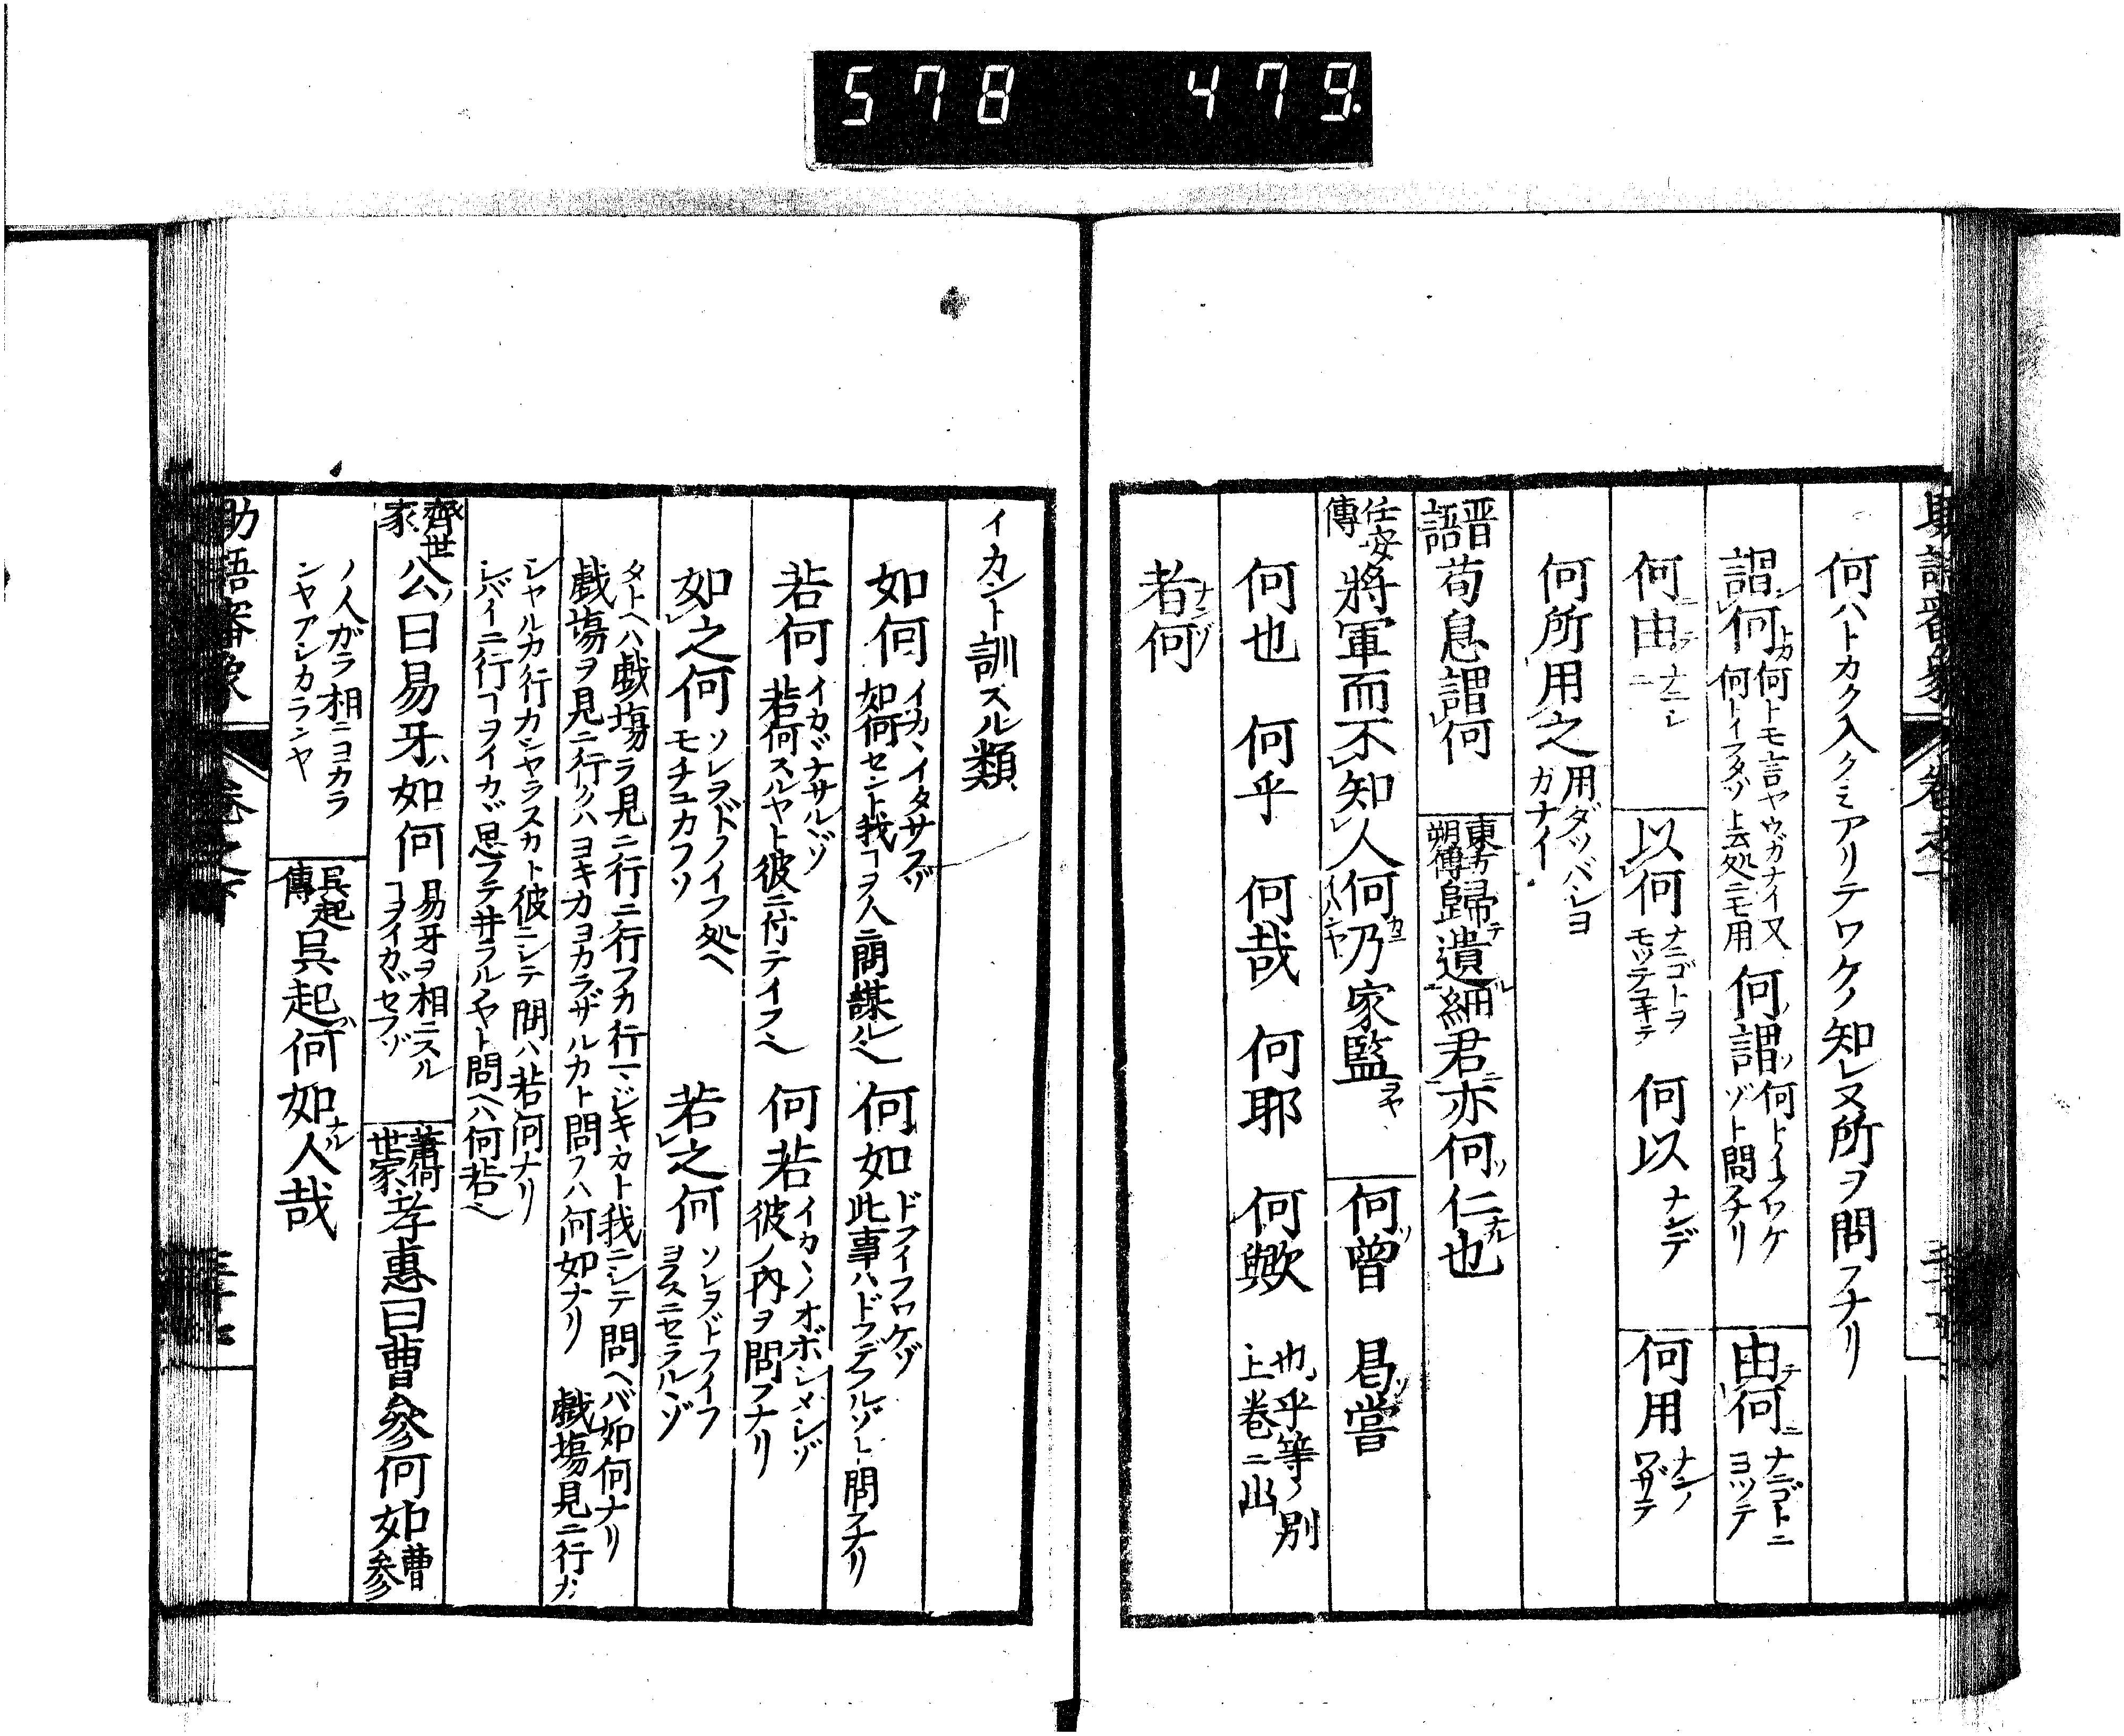 578 479.
何ハトカク入クミアリテワケノ知レヌ所ヲ問フナリ
謂何 何トモ言ヤウガナイ又何トイフタゾト云処ニモ用 何謂 何トイフワケゾト問フナリ 由何 ナニゴトニヨツテ
何由 以何 ナニゴトヲモツテ 何以 ナンデ 何用 ナニノワザテ
何所用之 用ダツバシヨガナイ
晋語 荀息謂何 東方朔傳 歸遺細君亦何仁也
任安傳 將軍而不知人何乃家監 何曾 曷嘗
何也 何乎 何哉 何耶 何歟 也乎等ノ別上巻ニ出
者何
イカント訓スル類
如何 如何セント我コヲ人ニ問謀ル 何如 ドフイフワケゾ此事ハドフデフルゾト問フナリ
若何 イカヾナサルゾ若何スルヤト彼ニ付テイフ 何若 彼ノ内ヲ問フナリ
如之何 ソレヲドノイフ処ヘモチユカフゾ 若之何 ソレヲドフイフヨフスニセラルヽゾ
タトヘハ戯場ヲ見ニ行ニ行フカ行マジキカト我ニシテ問ヘバ如何ナリ
戯場ヲ見ニ行クハヨキカヨカラザルカト問フハ何如ナリ 戯場見ニ行カ
シヤルカ行カシヤラヌカト彼ニシテ問ハ若何ナリ
シバイニ行コヲイカヾ思フテ井ラルヽヤト問ヘハ何若
齊世家 公曰易牙如何 易牙ヲ相ニスルコヲイカヾセフゾ 蕭何世家 孝惠曰曹參何如 曹参
ノ人ガラ相ニヨカランヤアシカランヤ 呉起傳 呉起何如人哉
助語審象